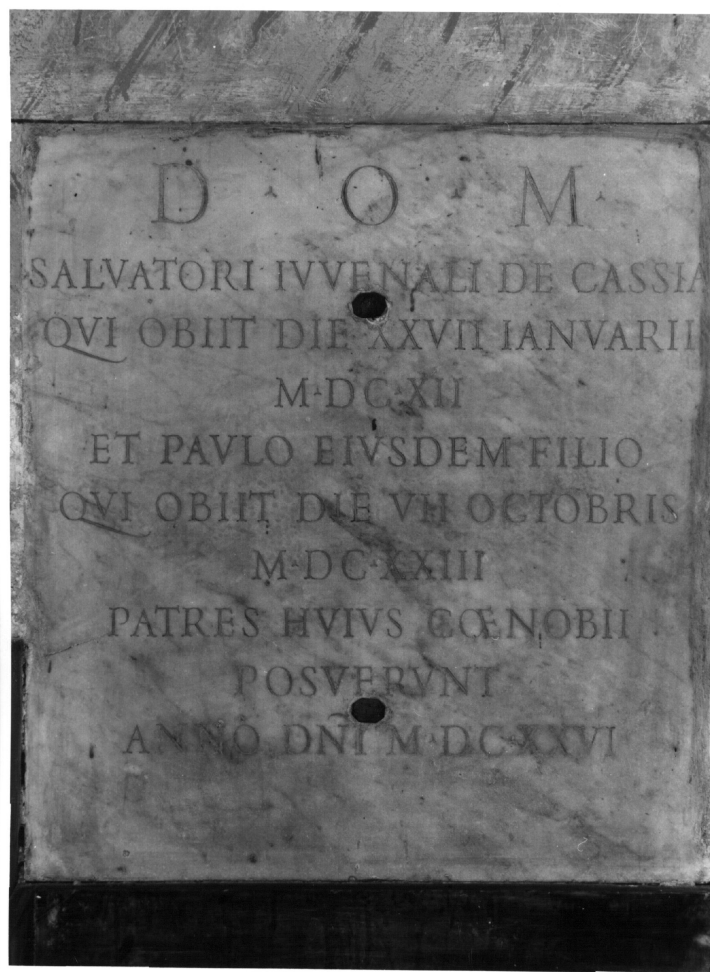 D · O · M ·
SALVATORI IVVENALI DE CASSIA
QVI OBIIT DIE XXVII IANVARII
M·DC·XII
ET PAVLO EIVSDEM FILIO
QVI OBIIT DIE VII OCTOBRIS
M·DC·XXIII
PATRES HVIVS CŒNOBII
POSVERVNT
ANNO DÑI M·DC·XXVI